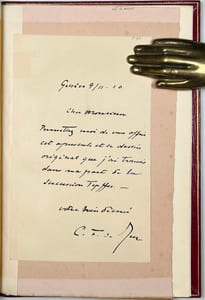 Genève 9/11-10
Cher Monsieur
Permettez moi de vous offrir
cet opuscule et le dessin
original que j'ai trouvés
dans ma part de la
succession Töpffer —
votre bien dévoué